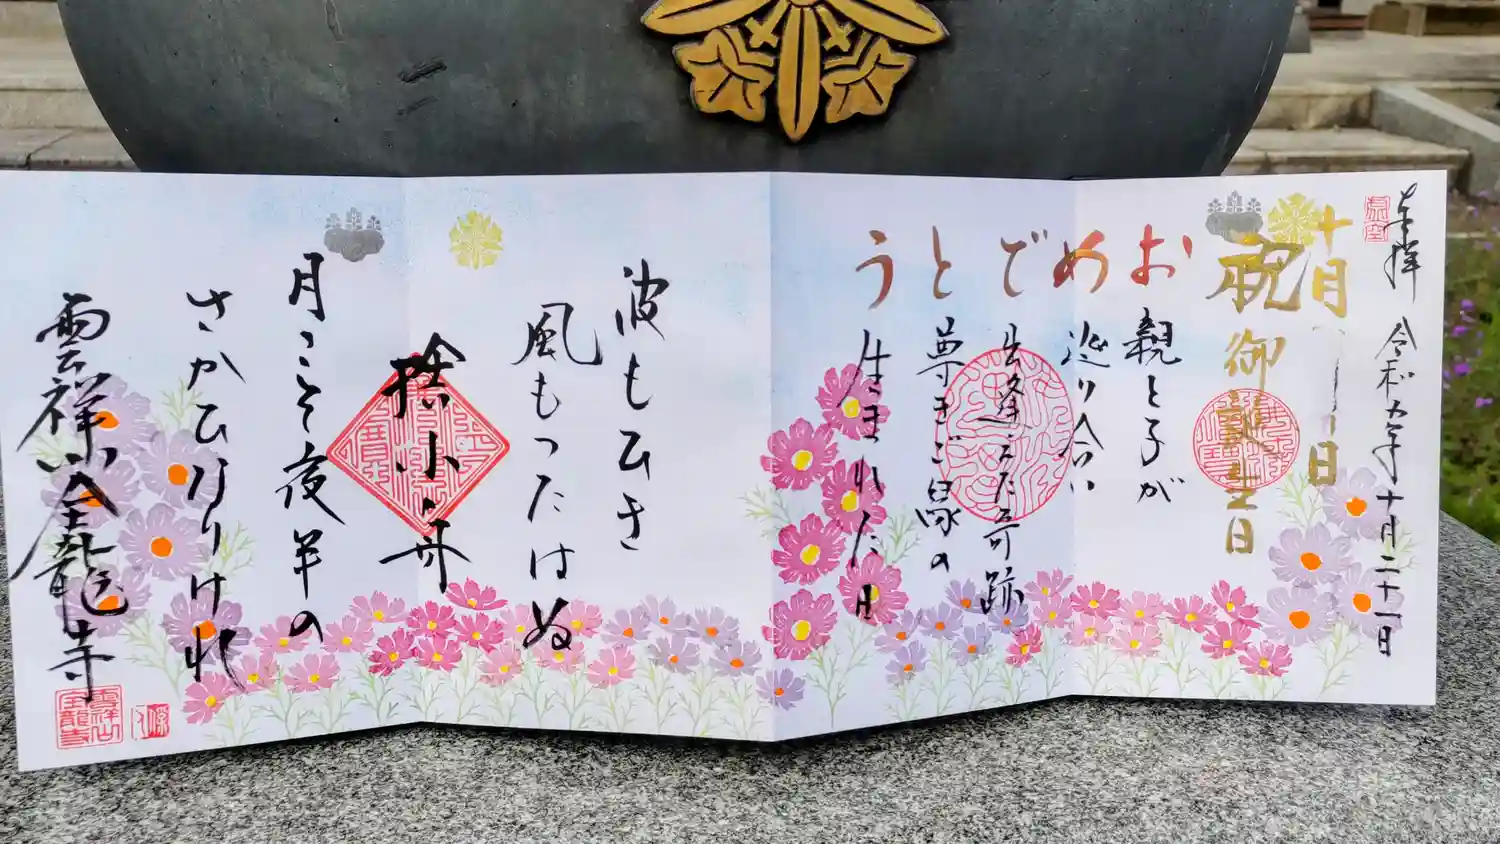 奉拝
令和五年十月二十一日
十月
日
祝御誕生日
おめでとう
親と子が
巡り合い
出逢えた奇跡
尊きご縁の
生まれた日
波もひき
風もつたはぬ
捨小舟
月こそ夜半の
さかひなりけれ
雲祥山全龍寺